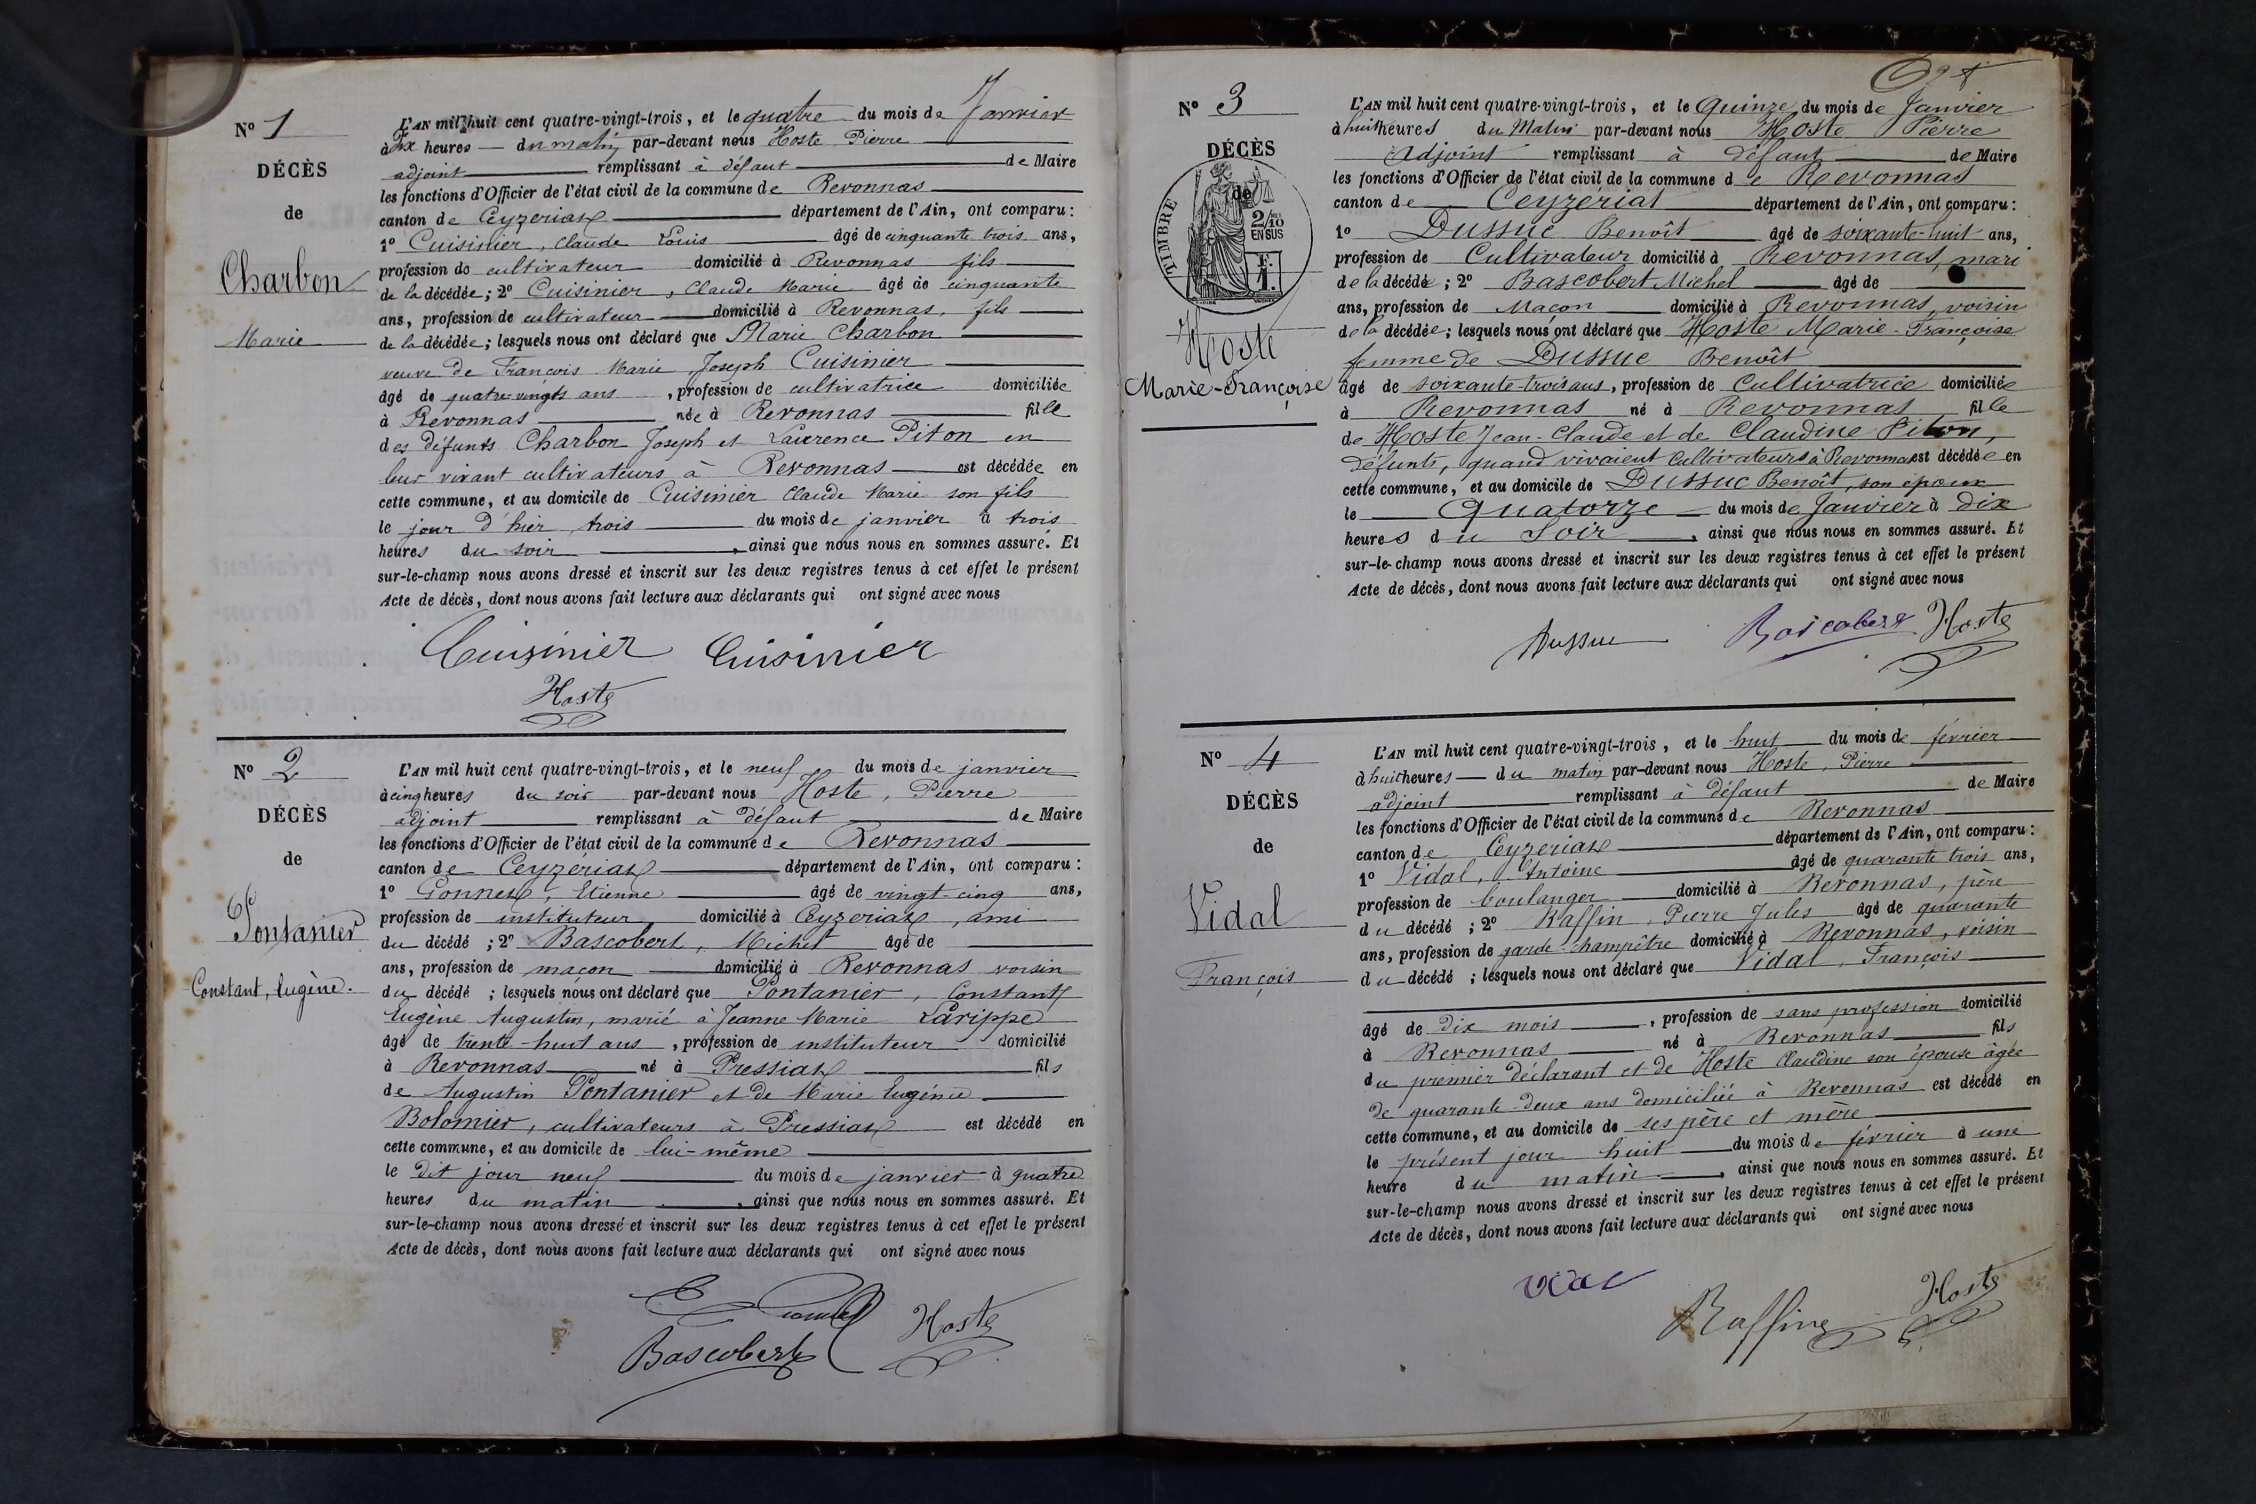 N° 1
DÉCÈS
de
Charbon
Marie
L'AN mil huit cent quatre-vingt-trois, et le quatre du mois de Janvier
à Dix heures du matin par-devant nous Hoste Pierre
adjoint remplissant à défaut de Maire
les fonctions d'Officier de l'état civil de la commune de Revonnas
canton de Ceyzeriat département de l'Ain, ont comparu :
1° Cuisinier, Claude Louis âgé de cinquante trois ans,
profession de cultivateur domicilié à Revonnas fils
de la décédée ; 2° Cuisinier, Claude Marie âgé de cinquante
ans, profession de cultivateur domicilié à Revonnas, fils
de la décédée ; lesquels nous ont déclaré que Marie Charbon
veuve de François Marie Joseph Cuisinier
âgé de quatre-vingts ans, profession de cultivatrice domiciliée
à Revonnas née à Revonnas fille
des défunts Charbon Joseph et Laurence Piton en
leur vivant cultivateurs à Revonnas est décédée en
cette commune, et au domicile de Cuisinier Claude Marie son fils
le jour d'hier trois du mois de janvier à trois
heures du soir, ainsi que nous nous en sommes assuré. Et
sur-le-champ nous avons dressé et inscrit sur les deux registres tenus à cet effet le présent
Acte de décès, dont nous avons fait lecture aux déclarants qui ont signé avec nous
Cuisinier Cuisinier
Hoste
N° 2
DÉCÈS
de
Pontanier
Constant, Eugène.
L'AN mil huit cent quatre-vingt-trois, et le neuf du mois de janvier
à cinq heures du soir par-devant nous Hoste, Pierre
adjoint remplissant à défaut de Maire
les fonctions d'Officier de l'état civil de la commune de Revonnas
canton de Ceyzériat département de l'Ain, ont comparu :
1° Gonnet, Etienne âgé de vingt-cinq ans,
profession de instituteur domicilié à Ceyzeriat, ami
du décédé ; 2° Bascobert, Michel âgé de
ans, profession de maçon domicilié à Revonnas voisin
du décédé ; lesquels nous ont déclaré que Pontanier, Constant
Eugène Augustin, marié à Jeanne Marie Larippe
âgé de trente-huit ans, profession de instituteur domicilié
à Revonnas né à Pressiat fils
de Augustin Pontanier et de Marie Eugénie
Bolomier, cultivateurs à Pressiat est décédé en
cette commune, et au domicile de lui-même
le dit jour neuf du mois de janvier à quatre
heures du matin, ainsi que nous nous en sommes assuré. Et
sur-le-champ nous avons dressé et inscrit sur les deux registres tenus à cet effet le présent
Acte de décès, dont nous avons fait lecture aux déclarants qui ont signé avec nous
Bascobert Hoste
N° 3
DÉCÈS
de
TIMBRE
2/10
EN SUS
F.
1.
Hoste
Marie-Françoise
L'AN mil huit cent quatre-vingt-trois, et le Quinze du mois de Janvier
à huit heures du Matin par-devant nous Hoste Pierre
Adjoint remplissant à défaut de Maire
les fonctions d'Officier de l'état civil de la commune de Revonnas
canton de Ceyzériat département de l'Ain, ont comparu :
1° Dussuc Benoît âgé de soixante-huit ans,
profession de Cultivateur domicilié à Revonnas, mari
de la décédée ; 2° Bascobert Michel âgé de
ans, profession de Maçon domicilié à Revonnas, voisin
de la décédée ; lesquels nous ont déclaré que Hoste Marie-Françoise
femme de Dussuc Benoît
âgé de soixante-trois ans, profession de Cultivatrice domiciliée
à Revonnas né à Revonnas fille
de Hoste Jean-Claude et de Claudine Piton,
défunts, quand vivaient Cultivateurs à Revonnas est décédée en
cette commune, et au domicile de Dussuc Benoît, son époux
le Quatorze du mois de Janvier à Dix
heures du Soir, ainsi que nous nous en sommes assuré. Et
sur-le-champ nous avons dressé et inscrit sur les deux registres tenus à cet effet le présent
Acte de décès, dont nous avons fait lecture aux déclarants qui ont signé avec nous
Dussuc Bascobert Hoste
N° 4
DÉCÈS
de
Vidal
François
L'AN mil huit cent quatre-vingt-trois, et le huit du mois de février
à huit heures du matin par-devant nous Hoste, Pierre
adjoint remplissant à défaut de Maire
les fonctions d'Officier de l'état civil de la commune de Revonnas
canton de Ceyzeriat département de l'Ain, ont comparu :
1° Vidal, Antoine âgé de quarante trois ans,
profession de boulanger domicilié à Revonnas, père
du décédé ; 2° Raffin, Pierre Jules âgé de quarante
ans, profession de garde-champêtre domicilié à Revonnas, voisin
du décédé ; lesquels nous ont déclaré que Vidal, François
âgé de dix mois, profession de sans profession domicilié
à Revonnas né à Revonnas fils
du premier déclarant et de Hoste Claudine son épouse âgée
de quarante-deux ans domiciliée à Revonnas est décédé en
cette commune, et au domicile de ses père et mère
le présent jour huit du mois de février à une
heure du matin, ainsi que nous nous en sommes assuré. Et
sur-le-champ nous avons dressé et inscrit sur les deux registres tenus à cet effet le présent
Acte de décès, dont nous avons fait lecture aux déclarants qui ont signé avec nous
Raffin Hoste